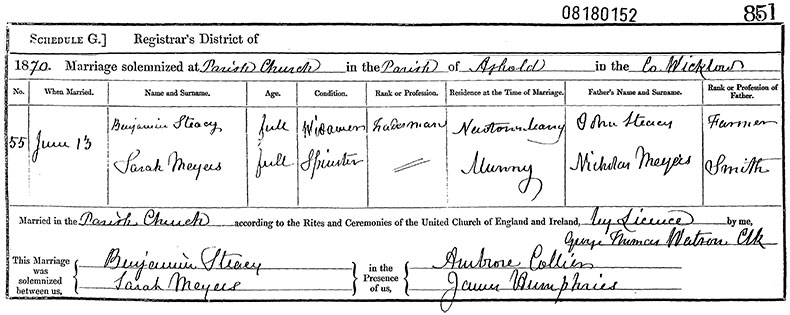 08180152 851
SCHEDULE G.] Registrar's District of
1870. Marriage solemnized at Parish Church in the Parish of Aghold in the Co Wicklow
No. When Married. Name and Surname. Age. Condition. Rank or Profession. Residence at the Time of Marriage. Father's Name and Surname. Rank or Profession of Father.
55 June 13 Benjamin Steacy full Widower Tradesman John Steacy Farmer
Sarah Meyers full Spinster Munny Nicholas Meyers Smith
Married in the Parish Church according to the Rites and Ceremonies of the United Church of England and Ireland, by Licence by me,
George Thomas Watson Clk
This Marriage was solemnized between us, Benjamin Steacy in the Presence of us, Ambrose Collier
Sarah Meyers James Humphries